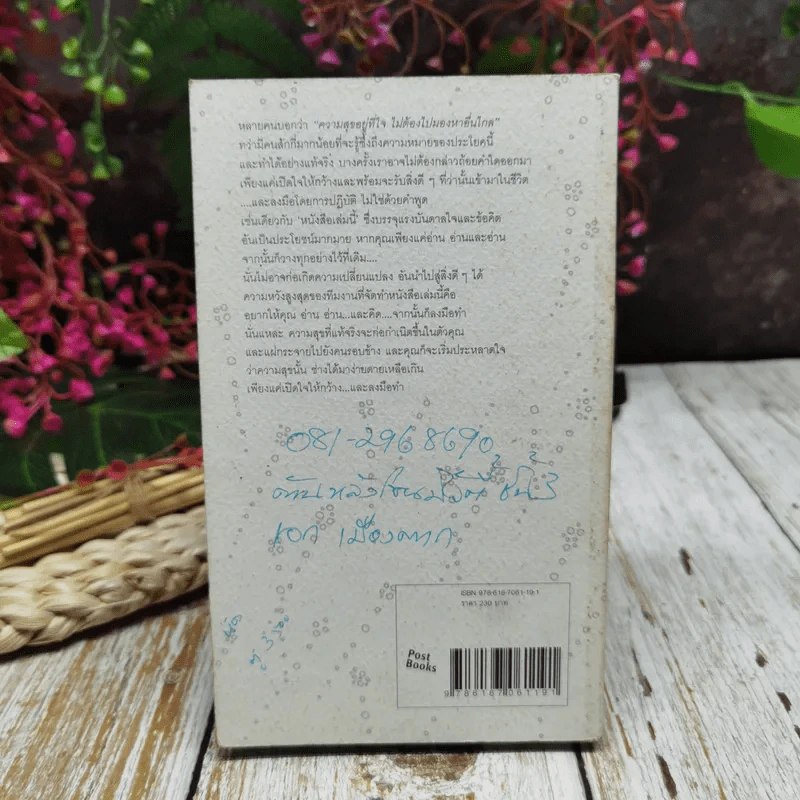 หลายคนบอกว่า "ความสุขอยู่ที่ใจ ไม่ต้องไปมองหาอื่นไกล"
ทว่ามีคนสักกี่มากน้อยที่จะรู้ซึ้งถึงความหมายของประโยคนี้
และทำได้อย่างแท้จริง บางครั้งเราอาจไม่ต้องกล่าวถ้อยคำใดออกมา
เพียงแค่เปิดใจให้กว้างและพร้อมจะรับสิ่งดี ๆ ที่ว่านั้นเข้ามาในชีวิต
....และลงมือโดยการปฏิบัติ ไม่ใช่ด้วยคำพูด
เช่นเดียวกับ 'หนังสือเล่มนี้' ซึ่งบรรจุแรงบันดาลใจและข้อคิด
อันเป็นประโยชน์มากมาย หากคุณเพียงแค่อ่าน อ่านและอ่าน
จากนั้นก็วางทุกอย่างไว้ที่เดิม....
นั่นไม่อาจก่อเกิดความเปลี่ยนแปลง อันนำไปสู่สิ่งดี ๆ ได้
ความหวังสูงสุดของทีมงานที่จัดทำหนังสือเล่มนี้คือ
อยากให้คุณ อ่าน อ่าน...และคิด....จากนั้นก็ลงมือทำ
นั่นแหละ ความสุขที่แท้จริงจะก่อกำเนิดขึ้นในตัวคุณ
และแผ่กระจายไปยังคนรอบข้าง และคุณก็จะเริ่มประหลาดใจ
ว่าความสุขนั้น ช่างได้มาง่ายดายเหลือเกิน
เพียงแค่เปิดใจให้กว้าง...และลงมือทำ
081-2968690
ISBN 978-616-7061-19-1
ราคา 230 บาท
Post
Books
9 786167 061191